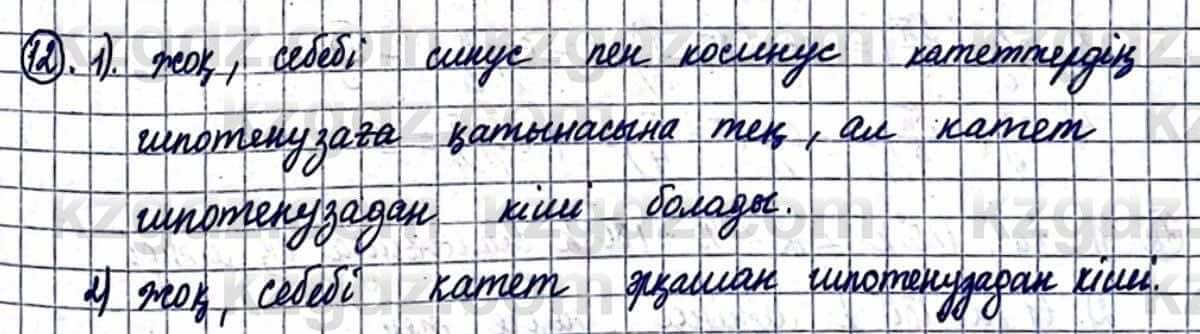 12. 1). жоқ, себебі синус пен косинус катеттердің
гипотенузаға қатынасына тең, ал катет
гипотенузадан кіші болады.
2) жоқ, себебі катет әрқашан гипотенузадан кіші.